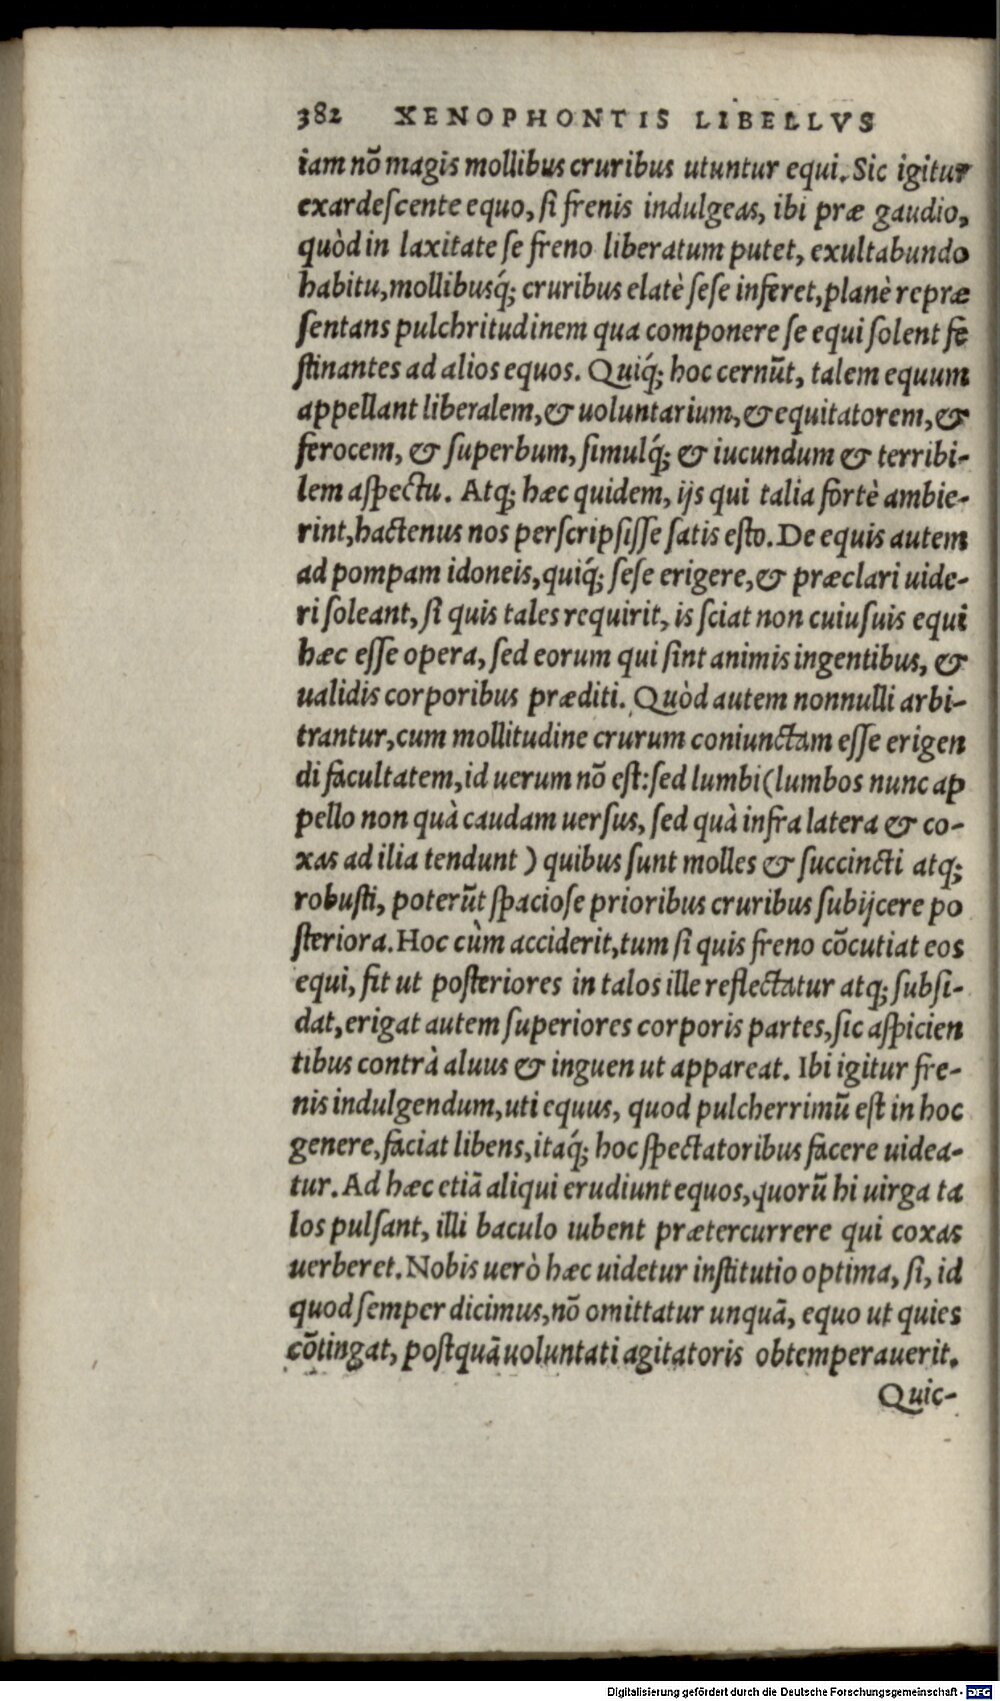 382 XENOPHONTIS LIBELLVS
iam nõ magis mollibus cruribus utuntur equi. Sic igitur
exardeſcente equo, ſi frenis indulgeas, ibi præ gaudio,
quòd in laxitate ſe freno liberatum putet, exultabundo
habitu, mollibusq́; cruribus elatè ſeſe inferet, planè repræ
ſentans pulchritudinem qua componere ſe equi ſolent fe
ſtinantes ad alios equos. Quiq́; hoc cernũt, talem equum
appellant liberalem, & uoluntarium, & equitatorem, &
ferocem, & ſuperbum, ſimulq́; & iucundum & terribi-
lem aſpectu. Atq; hæc quidem, ijs qui talia fortè ambie-
rint, hactenus nos perſcripſiſſe ſatis eſto. De equis autem
ad pompam idoneis, quiq́; ſeſe erigere, & præclari uide-
ri ſoleant, ſi quis tales requirit, is ſciat non cuiuſuis equi
hæc eſſe opera, ſed eorum qui ſint animis ingentibus, &
ualidis corporibus præditi. Quòd autem nonnulli arbi-
trantur, cum mollitudine crurum coniunctam eſſe erigen
di facultatem, id uerum nõ eſt: ſed lumbi (lumbos nunc ap
pello non quà caudam uerſus, ſed quà infra latera & co-
xas ad ilia tendunt) quibus ſunt molles & ſuccincti atq;
robuſti, poterũt ſpacioſe prioribus cruribus ſubijcere po
ſteriora. Hoc cùm acciderit, tum ſi quis freno cõcutiat eos
equi, fit ut poſteriores in talos ille reflectatur atq; ſubſi-
dat, erigat autem ſuperiores corporis partes, ſic aſpicien
tibus contrà aluus & inguen ut appareat. Ibi igitur fre-
nis indulgendum, uti equus, quod pulcherrimũ eſt in hoc
genere, faciat libens, itaq́; hoc ſpectatoribus facere uidea-
tur. Ad hæc etiã aliqui erudiunt equos, quorũ hi uirga ta
los pulſant, illi baculo iubent prætercurrere qui coxas
uerberet. Nobis uerò hæc uidetur inſtitutio optima, ſi, id
quod ſemper dicimus, nõ omittatur unquã, equo ut quies
cõtingat, poſtquã uoluntati agitatoris obtemperauerit.
Quic-
Digitalisierung gefördert durch die Deutsche Forschungsgemeinschaft - DFG